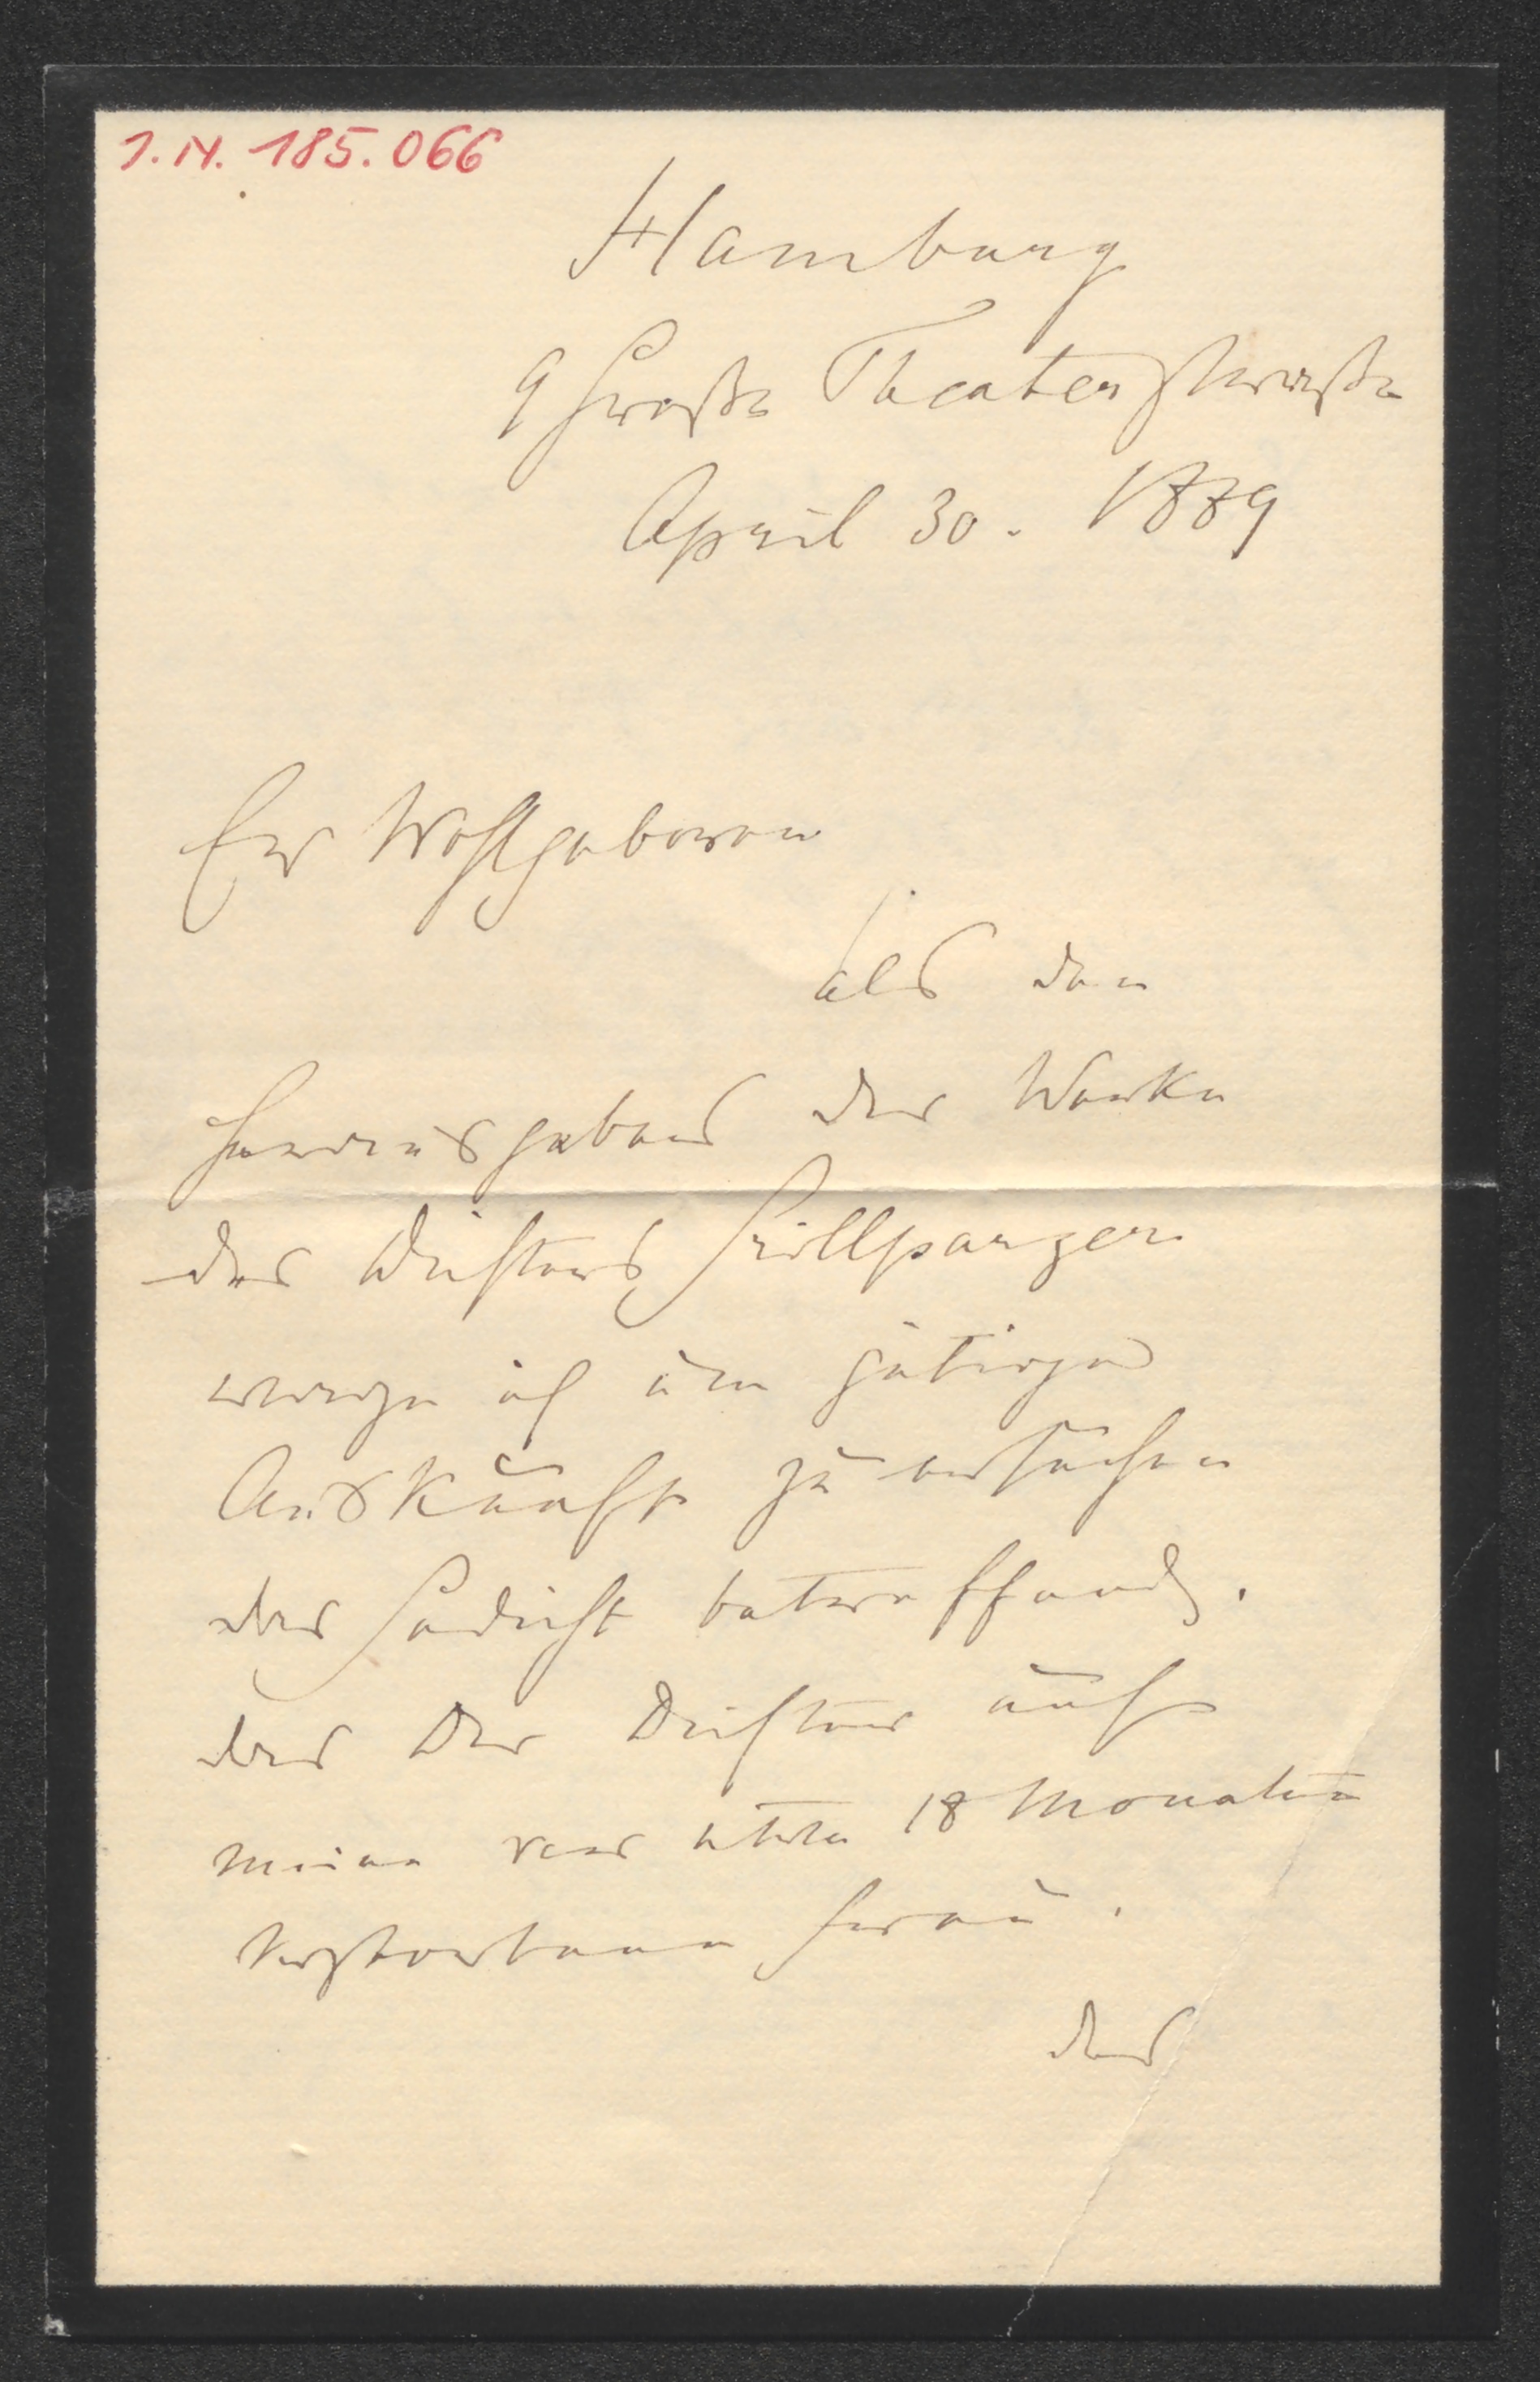 I.N. 185.066
Hamburg
9 Große Theaterstraße
April 30. 1889
Ew Wohlgeboren
als den
Herausgeber der Werke
des Dichters Grillparzer
wage ich um gütige
Auskunft zu ersuchen
das Gedicht betreffend,
das der Dichter auf
meine vor etwa 18 Monaten
verstorbene Frau,
das